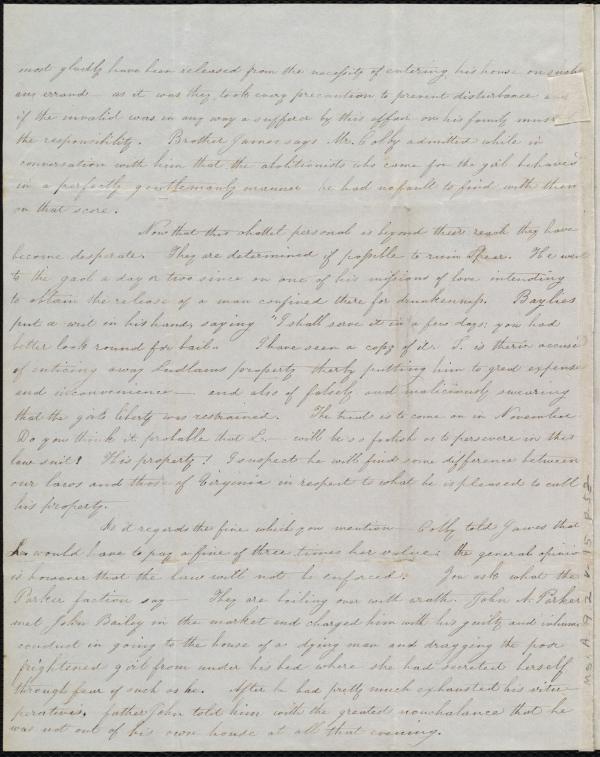 most gladly have been released from the necessity of entering his house on such
an errand — as it was they took every precaution to prevent disturbance and
if the invalid was in any way a sufferer by this affair on his family must
the responsibility. Brother James says Mr. Colby admitted while in
conversation with him that the abolitionists who came for the girl behaved
in a perfectly gentlemanly manner he had no fault to find with them
on that score.
Now that this chattel personal is beyond their reach they have
become desperate. They are determined if possible to ruin Spear. He went
to the gaol a day or two since on one of his missions of love intending
to obtain the release of a man confined there for drunkenness. Baylies
put a writ in his hands, saying "I shall serve it in a few days: you had
better look round for bail." I have seen a copy of it. S. is therein accused
of enticing away Ludlams property therby putting him to great expense
and inconvenience — and also of falsely and maliciously swearing
that the girls liberty was restrained. The trial is to come on in November
Do you think it probable that L— will be so foolish as to persevere in this
law suit! His property! I suspect he will find some difference between
our laws and those of Virginia in respect to what he is pleased to call
his property.
As it regards the fine which you mention — Colby told James that
he would have to pay a fine of three times her value; the general opinion
is however that the law will not be enforced. You ask what the
Parker faction say — They are boiling over with wrath. John A. Parker
met John Bailey in the market and charged him with his guilty and inhuman
conduct in going to the house of a dying man and dragging the poor
frightened girl from under his bed where she had secreted herself
through fear of such as he. After he had pretty much exhausted his vitu-
peratives, father John told him with the greatest nonchalance that he
was not out of his own house at all that evening.
Ms. A. 9. 2 v. 15, p. 52